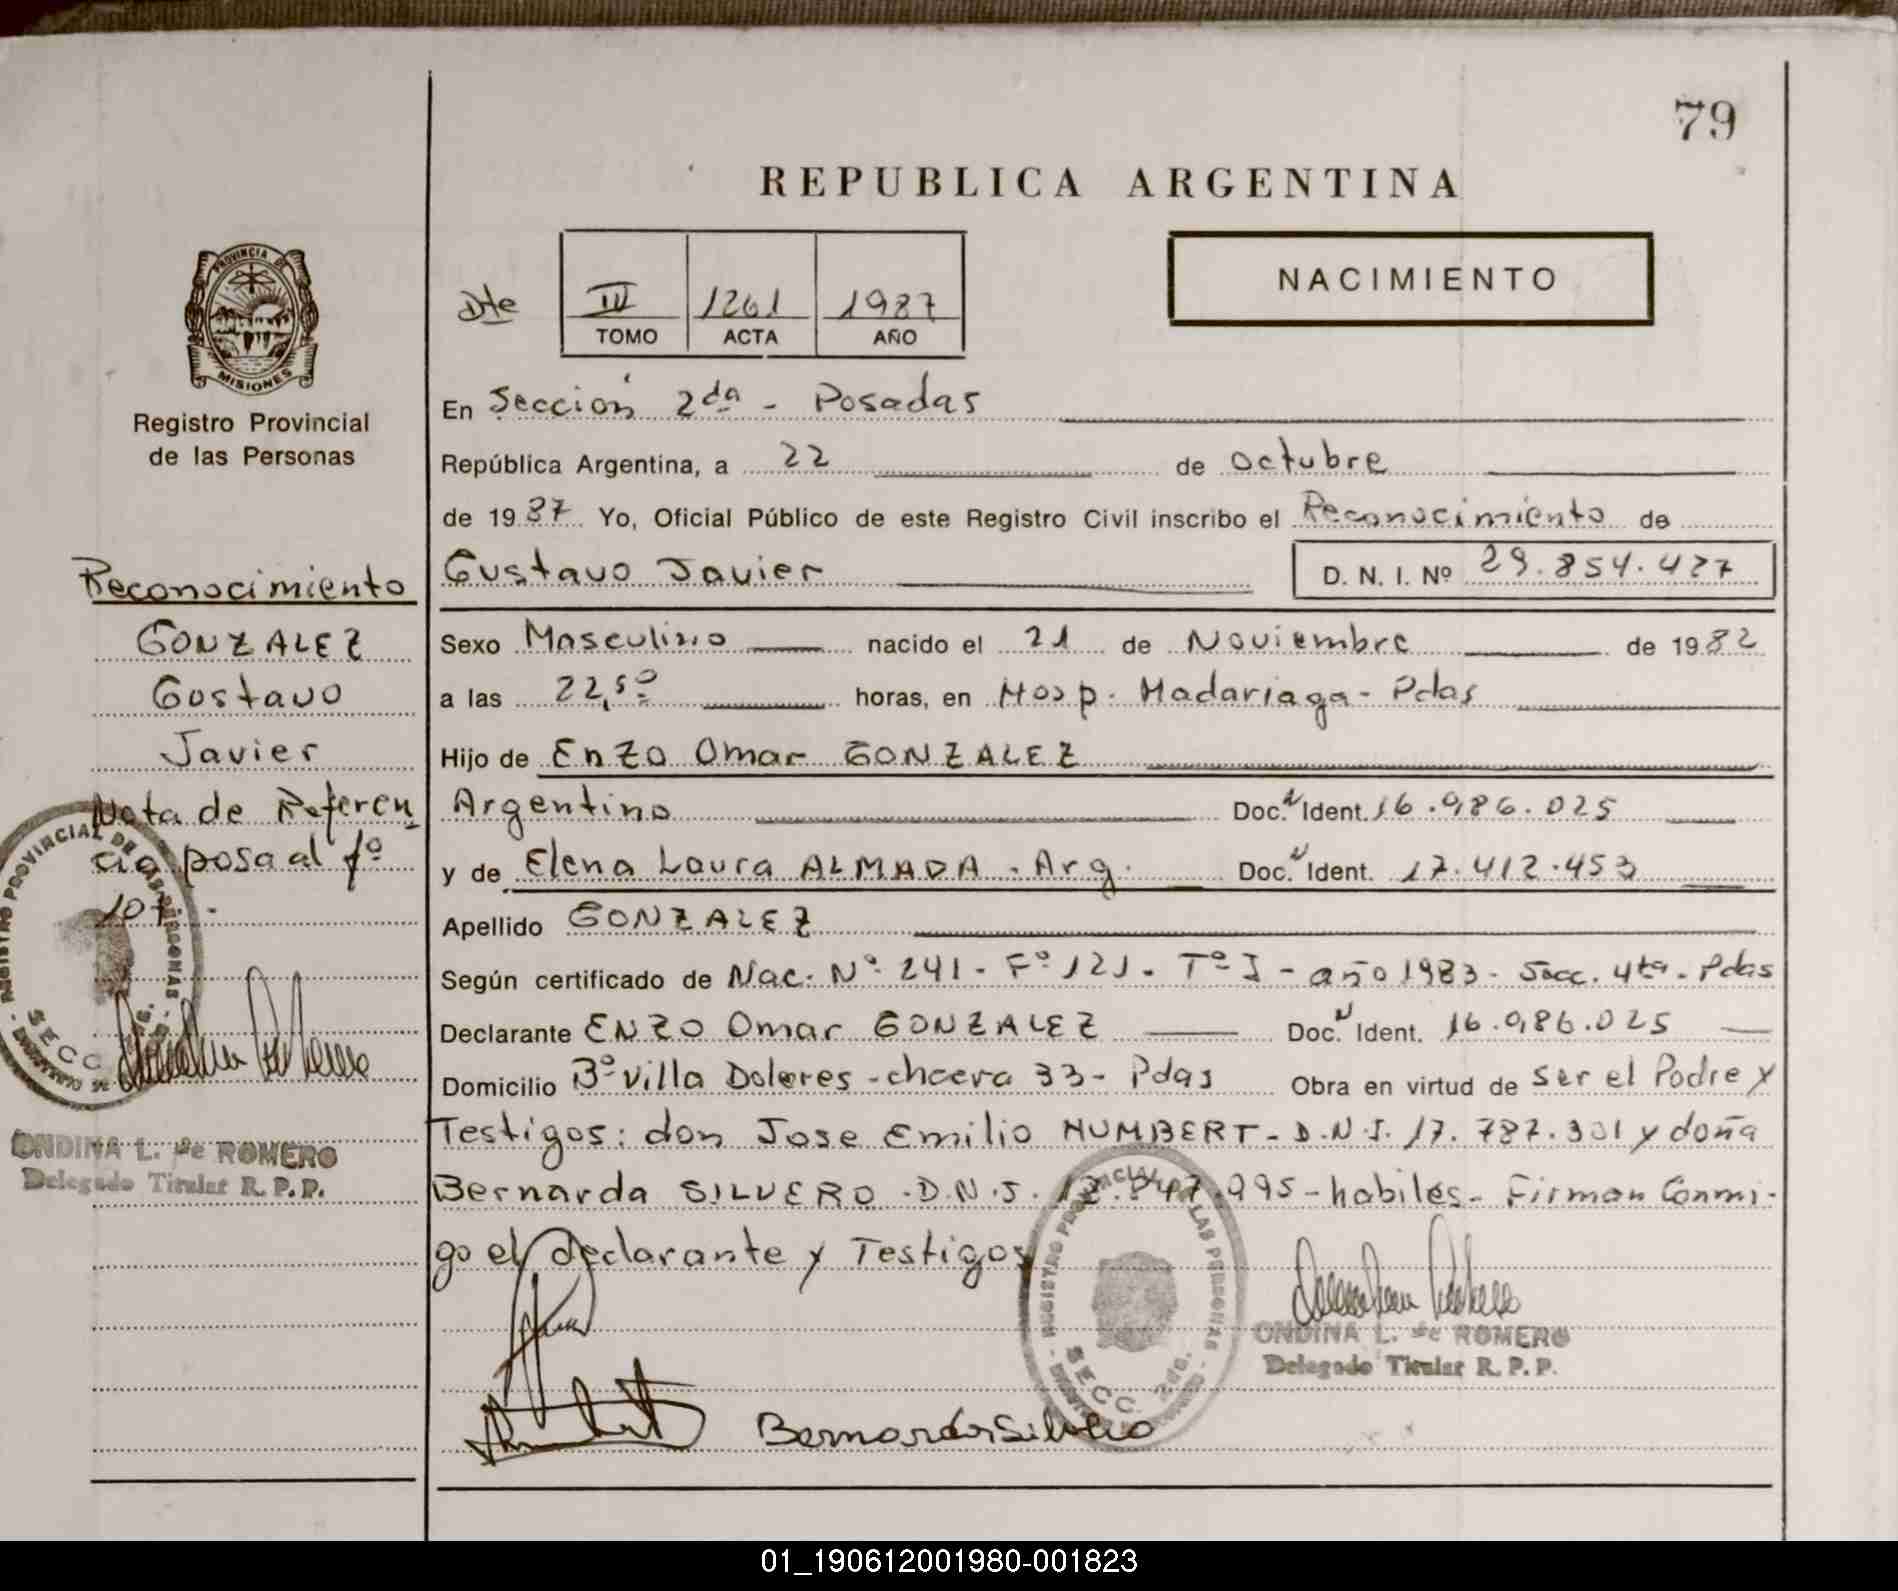 79
REPUBLICA ARGENTINA
Dte III 1261 1987
TOMO ACTA AÑO
NACIMIENTO
PROVINCIA DE MISIONES
Registro Provincial
de las Personas
En Sección 2da - Posadas
República Argentina, a 22 de octubre
de 1987 Yo, Oficial Público de este Registro Civil inscribo el Reconocimiento de
Gustavo Javier D. N. I. Nº 29.854.427
Sexo Masculino nacido el 21 de Noviembre de 1982
a las 22,50 horas, en Hosp. Madariaga - Pdas
Hijo de Enzo Omar GONZALEZ
Argentino Doc. N Ident. 16.986.025
y de Elena Laura ALMADA - Arg. Doc. N Ident. 17.412.453
Apellido GONZALEZ
Según certificado de Nac. Nº 241 - Fº 121 - Tº I - año 1983 - Secc. 4ta - Pdas
Declarante ENZO Omar GONZALEZ Doc. N Ident. 16.986.025
Domicilio Bº Villa Dolores - chacra 33 - Pdas Obra en virtud de ser el Padre y
Testigos: don Jose Emilio HUMBERT - D.N.I. 17.787.301 y doña
Bernarda SILVERO - D.N.I. 947.995 - habiles - Firman Conmi-
go el declarante y Testigos
REGISTRO PROVINCIAL DE LAS PERSONAS
SECC. 2da.
ONDINA L. de ROMERO
Delegado Titular R. P. P.
Bernarda Silvero
Reconocimiento
GONZALEZ
Gustavo
Javier
Nota de Referen
cia pasa al fº
107.-
REGISTRO PROVINCIAL DE LAS PERSONAS
SECC
ONDINA L. de ROMERO
Delegado Titular R. P. P.
01_190612001980-001823